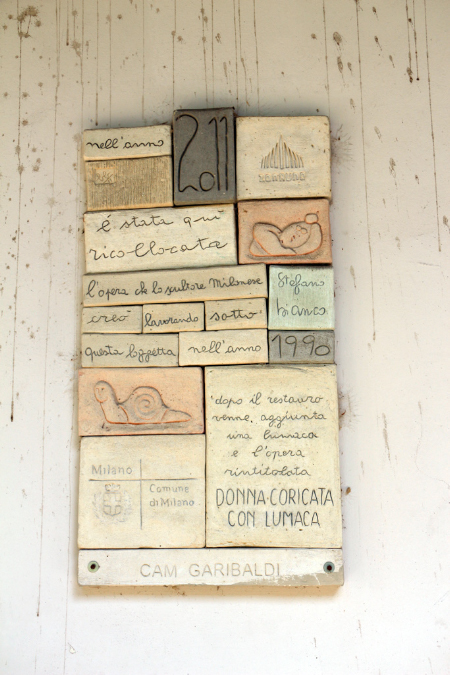 nell'anno
2011
è stata qui
ricollocata
l'opera che lo scultore Milanese
Stefano
Bianco
creò lavorando sotto
questa loggetta nell'anno 1990
dopo il restauro
venne aggiunta
una lumaca
e l'opera
rintitolata
DONNA CORICATA
CON LUMACA
Milano
Comune
di Milano
CAM GARIBALDI